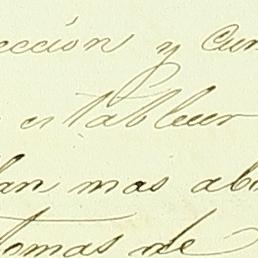 ección y cun
establecer
lan mas ab
tomas de